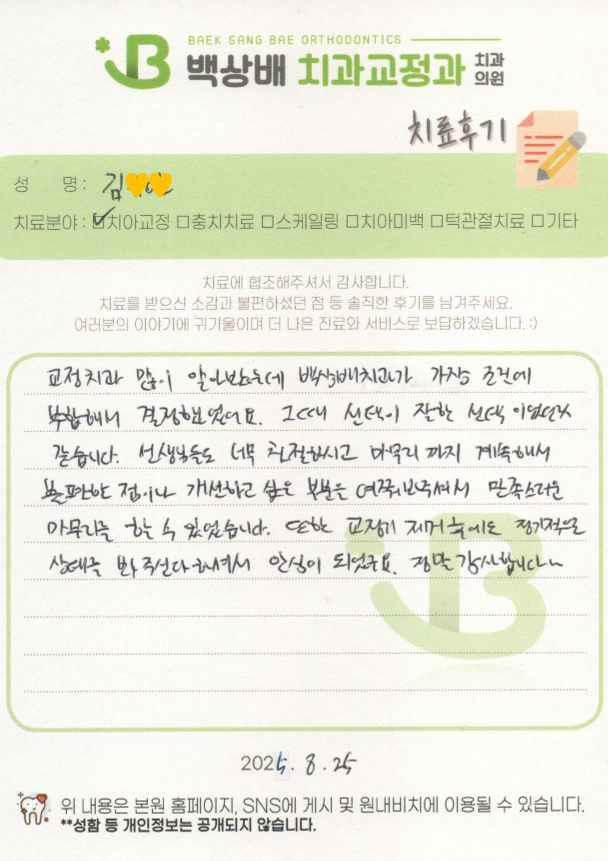 BAEK SANG BAE ORTHODONTICS
백상배 치과교정과 치과의원
치료후기
성 명 : 김
치료분야 : ☑치아교정 □충치치료 □스케일링 □치아미백 □턱관절치료 □기타
치료에 협조해주셔서 감사합니다.
치료를 받으신 소감과 불편하셨던 점 등 솔직한 후기를 남겨주세요.
여러분의 이야기에 귀기울이며 더 나은 진료와 서비스로 보답하겠습니다. :)
교정치과 많이 알아보았는데 백상배치과가 가장 조건에
부합해서 결정했었어요. 그때 선택이 잘한 선택이었던것
같습니다. 선생님들도 너무 친절하시고 마무리 까지 계속해서
불편한 점이나 개선하고 싶은 부분을 여쭤봐주셔서 만족스러운
마무리를 할 수 있었습니다. 또한 교정기 제거 후에도 정기적으로
상태를 봐 주신다 하셔서 안심이 되었구요. 정말 감사합니다~
2025. 8. 25
위 내용은 본원 홈페이지, SNS에 게시 및 원내비치에 이용될 수 있습니다.
**성함 등 개인정보는 공개되지 않습니다.